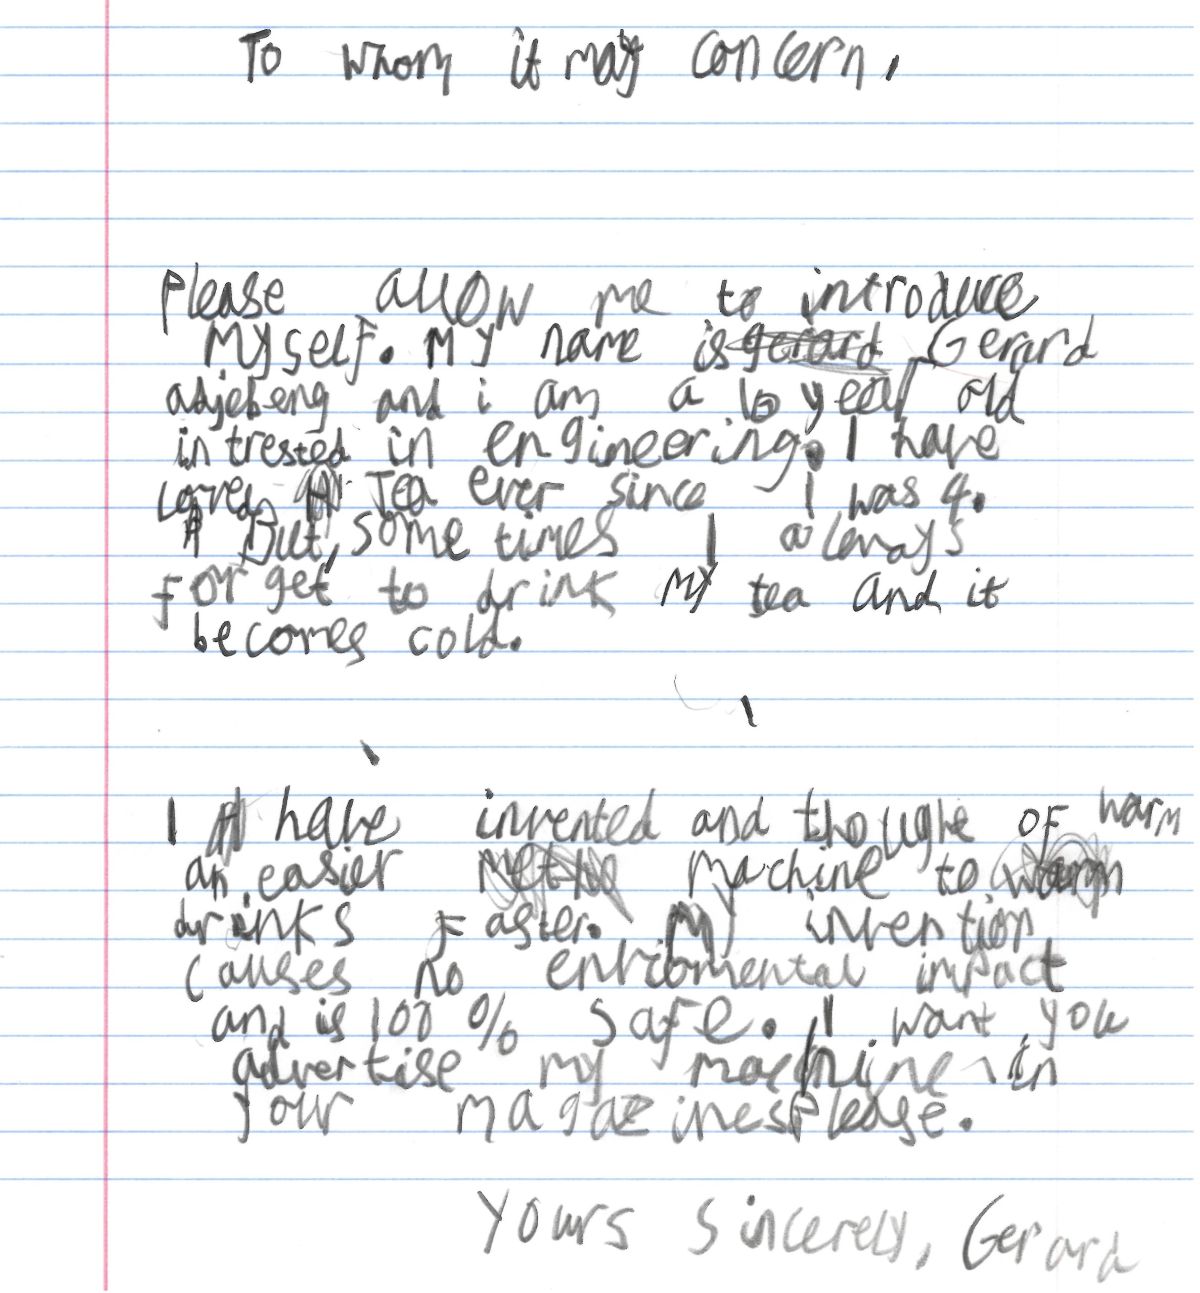 To whom it may concern,
Please allow me to introduce
myself. My name is Gerard
adjebeng and i am a 10 year old
intrested in engineering. I have
loved Tea ever since I was 4.
But, some times I always
Forget to drink my tea and it
becomes cold.
I have invented and thought OF warm
an easier machine to
drinks Faster. My invention
causes no enviromental impact
and is 100 % safe. I want you
advertise my machine in
your magazines please.
Yours sincerely, Gerard